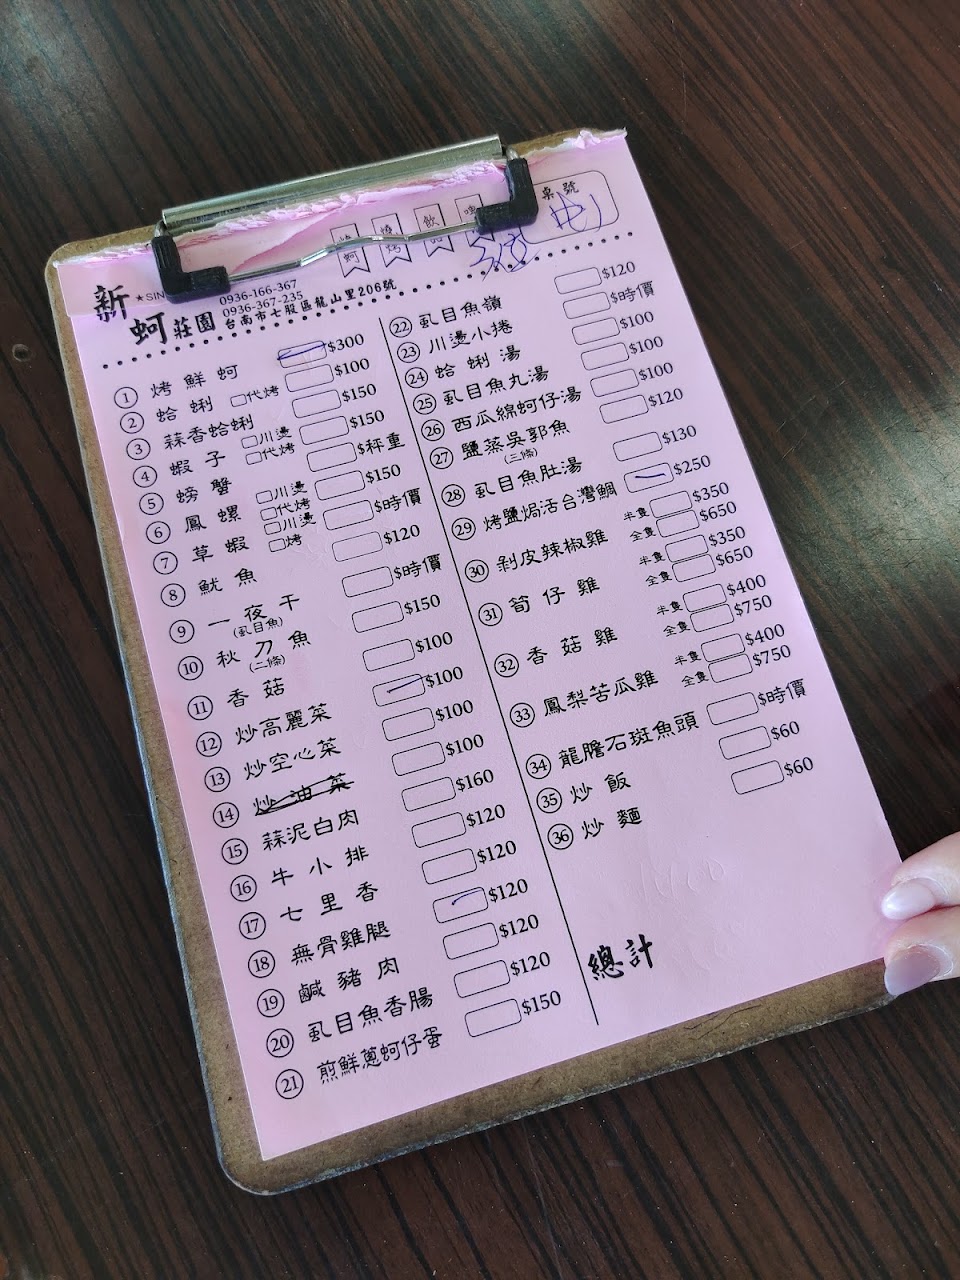 桌號
燒烤
飲品
新蚵莊園
★SIN
0936-166-367
0936-367-235
台南市七股區龍山里206號
① 烤鮮蚵 $300
② 蛤蜊 □代烤 $100
③ 蒜香蛤蜊 $150
④ 蝦子 □川燙 □代烤 $150
⑤ 螃蟹 $秤重
⑥ 鳳螺 □川燙 □代烤 $150
⑦ 草蝦 □川燙 □烤 $時價
⑧ 魷魚 $120
⑨ 一夜干 (虱目魚) $時價
⑩ 秋刀魚 (二條) $150
⑪ 香菇 $100
⑫ 炒高麗菜 $100
⑬ 炒空心菜 $100
⑭ 炒油菜 $100
⑮ 蒜泥白肉 $160
⑯ 牛小排 $120
⑰ 七里香 $120
⑱ 無骨雞腿 $120
⑲ 鹹豬肉 $120
⑳ 虱目魚香腸 $120
㉑ 煎鮮蔥蚵仔蛋 $150
㉒ 虱目魚嶺 $120
㉓ 川燙小捲 $時價
㉔ 蛤蜊湯 $100
㉕ 虱目魚丸湯 $100
㉖ 西瓜綿蚵仔湯 $100
㉗ 鹽蒸吳郭魚 (三條) $120
㉘ 虱目魚肚湯 $130
㉙ 烤鹽焗活台灣鯛 $250
㉚ 剝皮辣椒雞 半隻 $350 全隻 $650
㉛ 筍仔雞 半隻 $350 全隻 $650
㉜ 香菇雞 半隻 $400 全隻 $750
㉝ 鳳梨苦瓜雞 半隻 $400 全隻 $750
㉞ 龍膽石斑魚頭 $時價
㉟ 炒飯 $60
㊱ 炒麵 $60
總計